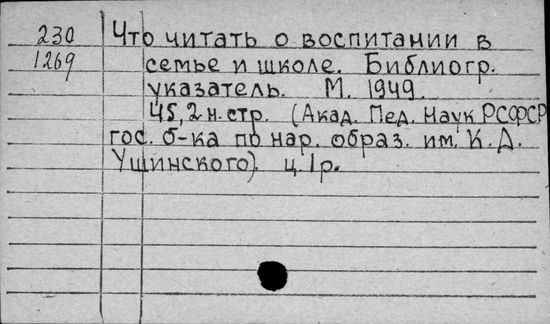 230 Что читать о воспитании в
1269 семье и школе. Библиогр.
указатель. М. 1949.
45, 2 н. стр. (Акад. Пед. Наук РСФСР
гос. б-ка по нар. образ. им. К. Д.
Ушинского). ц. 1 р.